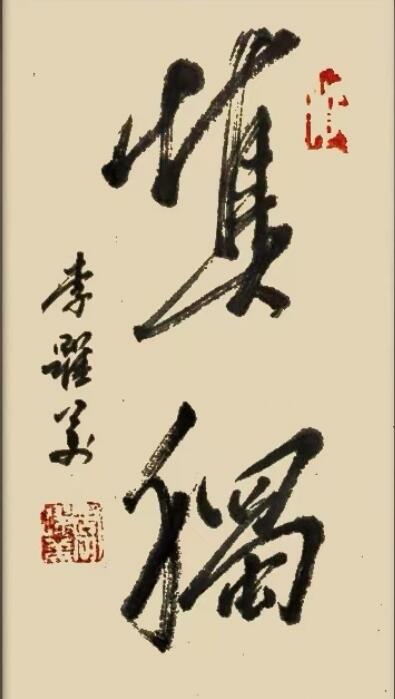 慎獨
李躍美